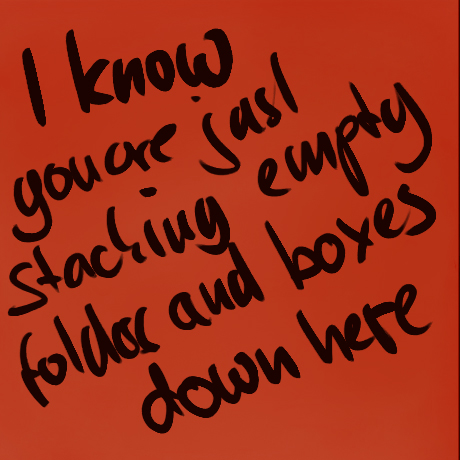 I know
you are just
stacking empty
folder and boxes
down here